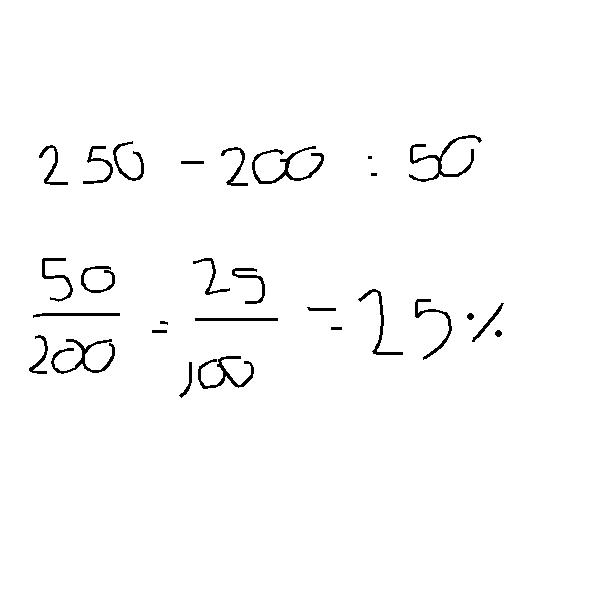 250 - 200 = 50
50/200 = 25/100 = 25%